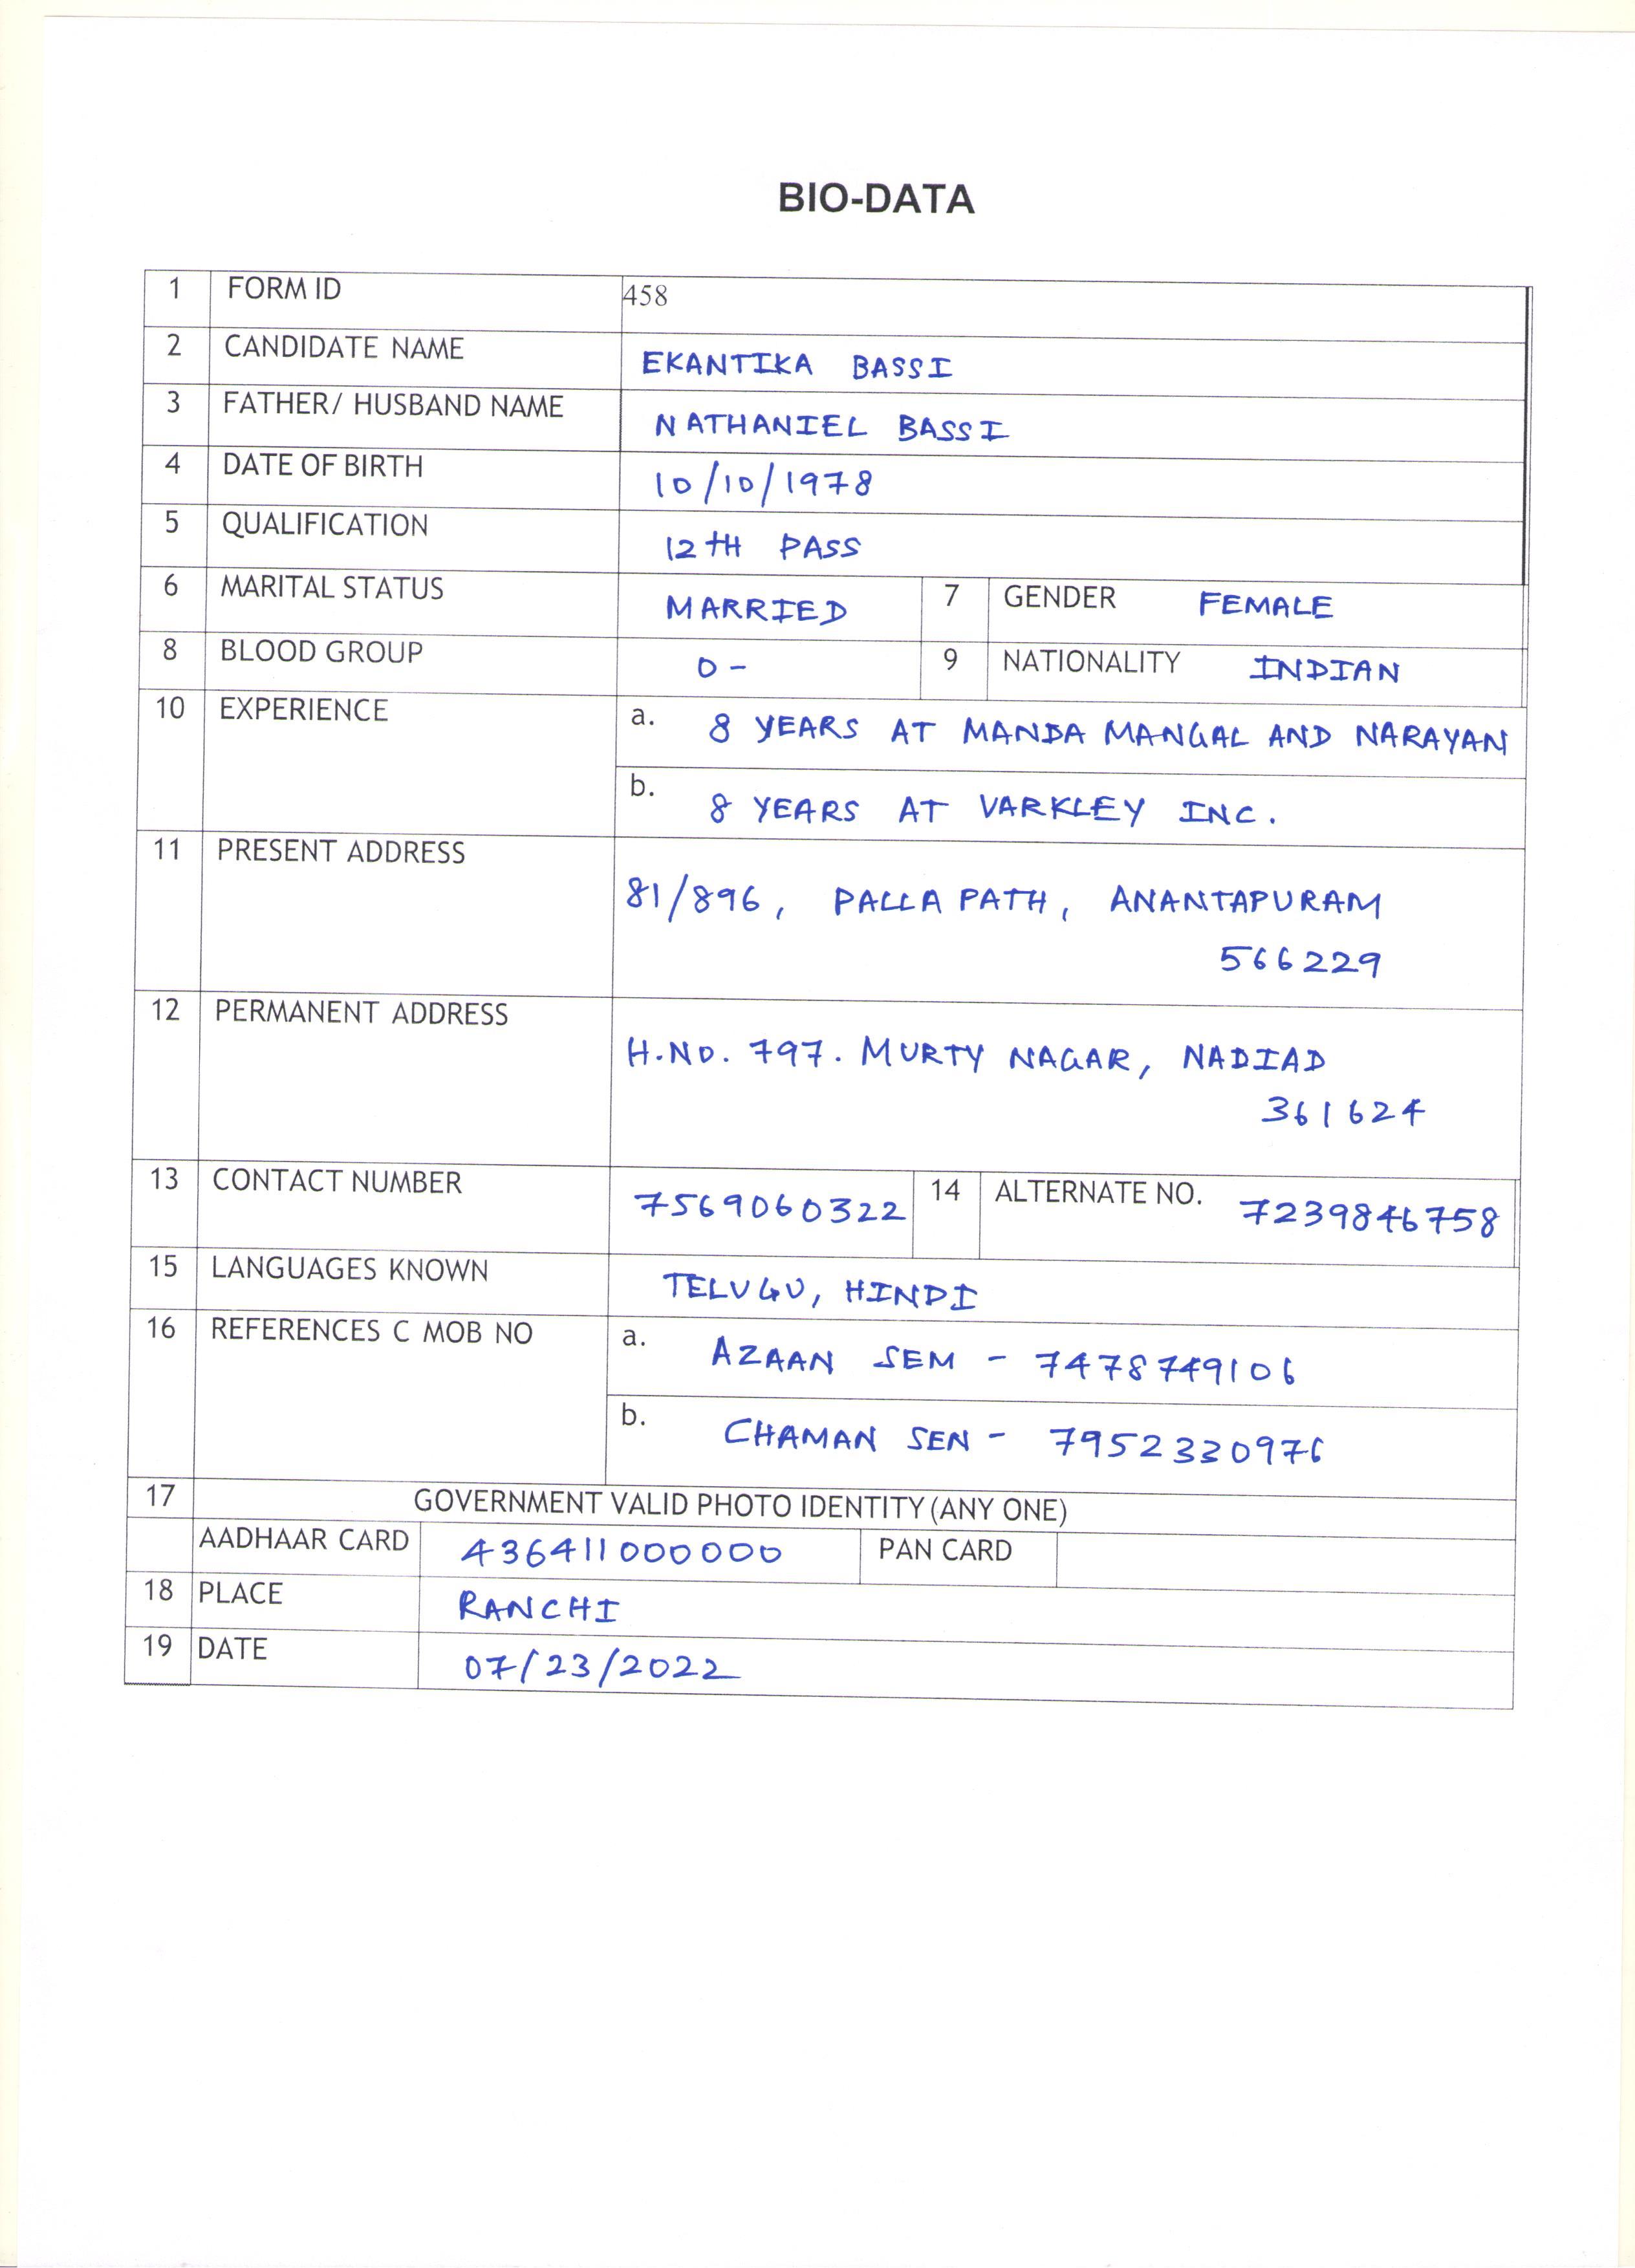 BIO-DATA
1 FORM ID 458
2 CANDIDATE NAME EKANTIKA BASSI
3 FATHER/ HUSBAND NAME NATHANIEL BASSI
4 DATE OF BIRTH 10/10/1978
5 QUALIFICATION 12TH PASS
6 MARITAL STATUS MARRIED 7 GENDER FEMALE
8 BLOOD GROUP O- 9 NATIONALITY INDIAN
10 EXPERIENCE a. 8 YEARS AT MANDA MANGAL AND NARAYAN
b. 8 YEARS AT VARKLEY INC.
11 PRESENT ADDRESS
81/896, PALLA PATH, ANANTAPURAM
566229
12 PERMANENT ADDRESS
H.NO. 797. MURTY NAGAR, NADIAD
361624
13 CONTACT NUMBER 7569060322 14 ALTERNATE NO. 7239846758
15 LANGUAGES KNOWN TELUGU, HINDI
16 REFERENCES C MOB NO a. AZAAN SEM - 7478749106
b. CHAMAN SEN - 7952330976
17 GOVERNMENT VALID PHOTO IDENTITY (ANY ONE)
AADHAAR CARD 436411000000 PAN CARD
18 PLACE RANCHI
19 DATE 07/23/2022